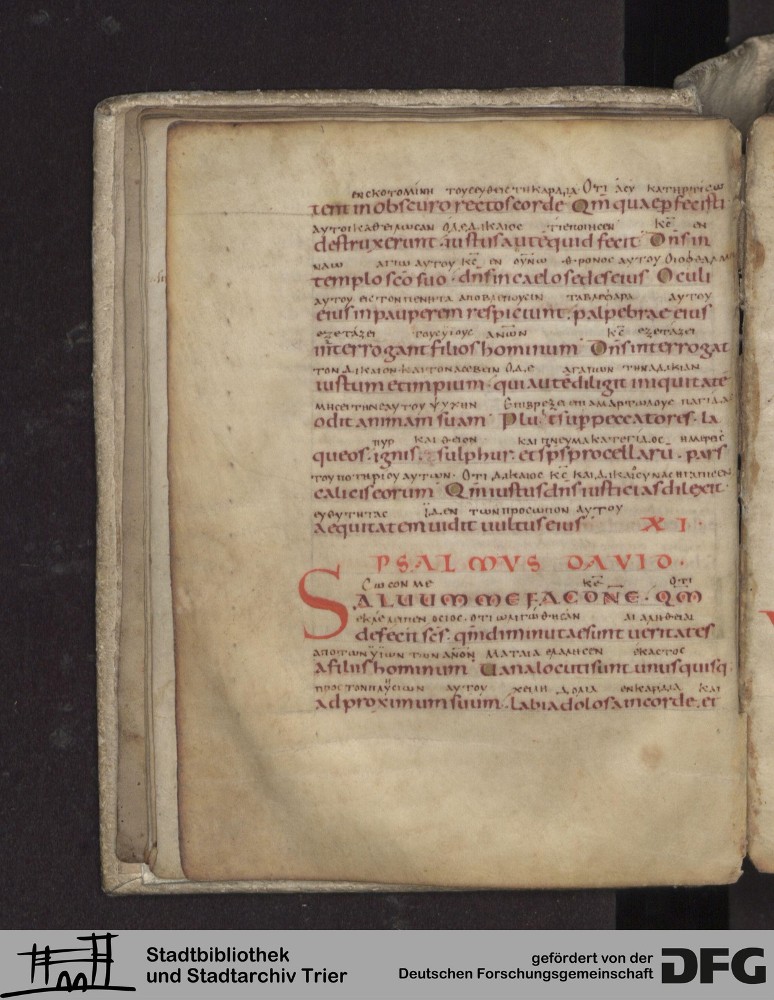 ΕΝ CΚΟΤΟΜΙΝΗ ΤΟΥC ΕΥΘΕΙC ΤΗ ΚΑΡΔΙΑ· ΟΤΙ
tent in obscuro rectos corde Qm quae pfecisti
destruxerunt · iustus aute quid fecit Dns in
ΑΓΙω ΑΥΤΟΥ ΚC ΕΝ ΟΥΝω · ΘΡΟΝΟC ΑΥΤΟΥ
templo sco suo · dns in caelo sedes eius Oculi
ΑΥΤΟΥ ΕΙC ΤΟΝ ΠΕΝΗΤΑ ΑΠΟΒΛΕΠΟΥCΙΝ ΤΑ ΒΛΕΦΑΡΑ ΑΥΤΟΥ
eius in pauperem respiciunt · palpebrae eius
ΕΞΕΤΑΖΕΙ ΤΟΥC ΥΙΟΥC ΑΝωΝ ΚC ΕΞΕΤΑΖΕΙ
interrogant filios hominum Dns interrogat
ΤΟΝ ΔΙΚΑΙΟΝ ΚΑΙ ΤΟΝ ΑCΕΒΕΙΝ Ο ΔΕ ΑΓΑΠωΝ ΤΗΝ ΑΔΙΚΙΑΝ
iustum et impium · qui aute diligit iniquitate
ΜΗCΕΙ ΤΗΝ ΕΑΥΤΟΥ ΨΥΧΗΝ ΕΠΙΒΡΕΞΕΙ ΕΠΙ ΑΜΑΡΤωΛΟΥC ΠΑΓΙΔΑ
odit animam suam Pluit sup peccatores · la
ΠΥΡ ΚΑΙ ΘΕΙΟΝ ΚΑΙ ΠΝΕΥΜΑ ΚΑΤΕΓΙΔΟC
queos · ignis · sulphur · et sps procellaru · pars
ΤΟΥ ΠΟΤΗΡΙΟΥ ΑΥΤωΝ · ΟΤΙ ΔΙΚΑΙΟC ΚC ΚΑΙ
calicis eorum Qm iustus dns iusticias dilexit ·
ΕΥΘΥΤΗΤΑC ΙΔΕΝ ΤωΝ ΠΡΟCωΠΟΝ ΑΥΤΟΥ
aequitatem uidit uultus eius XI ·
PSALMVS DAVID ·
CωCΟΝ ΜΕ ΚΕ ΟΤΙ
SALUUM ME FAC DNE · QM
ΟCΙΟC · ΟΤΙ
defecit scs · qm diminutae sunt ueritates
ΑΠΟ ΤωΝ ΥΙωΝ ΤωΝ ΑΝΟΝ ΜΑΤΑΙΑ ΕΛΑΛΗCΕΝ ΕΚΑCΤΟC
a filiis hominum Uana locuti sunt unusquisq ·
ΠΡΟC ΤΟΝ ΠΛΥCΙωΝ ΑΥΤΟΥ ΧΕΙΛΗ ΔΟΛΙΑ ΕΝ ΚΑΡΔΙΑ ΚΑΙ
ad proximum suum · Labia dolosa in corde · et
Stadtbibliothek
und Stadtarchiv Trier
gefördert von der
Deutschen Forschungsgemeinschaft
DFG